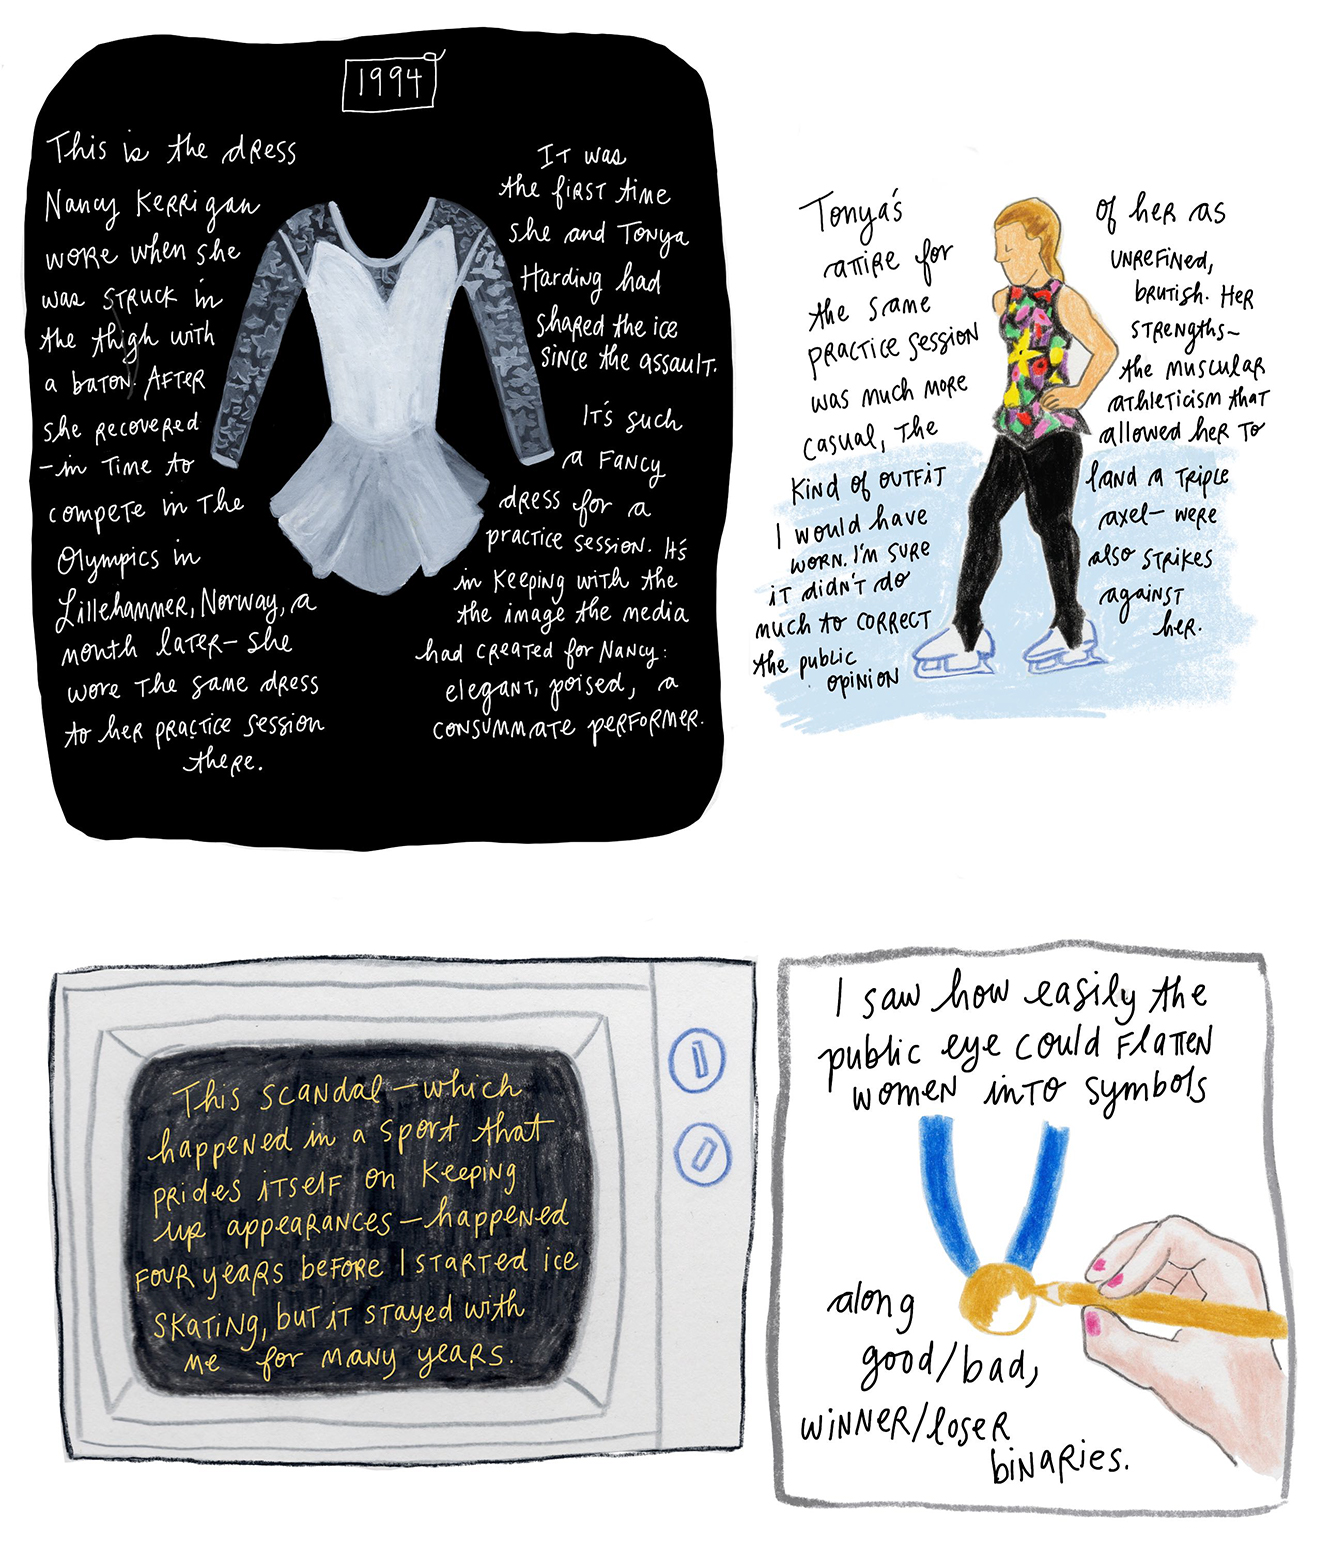 1994
This is the dress
Nancy Kerrigan
wore when she
was struck in
the thigh with
a baton. After
she recovered
-in time to
compete in the
Olympics in
Lillehammer, Norway, a
month later- she
wore the same dress
to her practice session
there.
It was
the first time
she and Tonya
Harding had
shared the ice
since the assault.
It's such
a fancy
dress for a
practice session. It's
in keeping with the
the image the media
had created for Nancy:
elegant, poised, a
consummate performer.
Tonya's
attire for
the same
practice session
was much more
casual, the
kind of outfit
I would have
worn. I'm sure
it didn't do
much to correct
the public
opinion
of her as
unrefined,
brutish. Her
strengths-
the muscular
athleticism that
allowed her to
land a triple
axel- were
also strikes
against
her.
This scandal-which
happened in a sport that
prides itself on keeping
up appearances-happened
four years before I started ice
skating, but it stayed with
me for many years.
I saw how easily the
public eye could flatten
women into symbols
along
good/bad,
winner/loser
binaries.